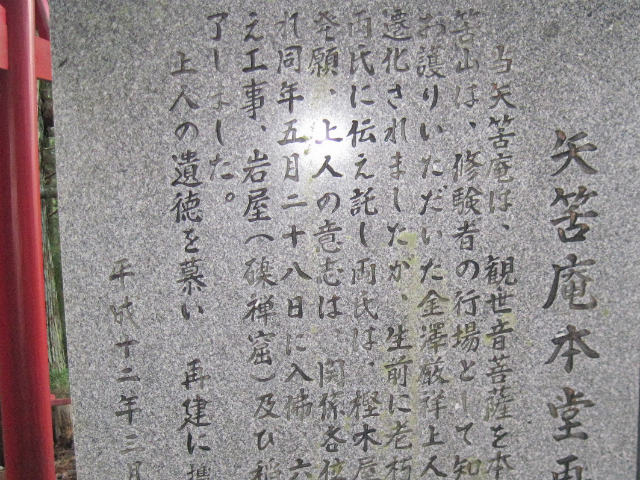 矢筈庵本堂再
当矢筈庵は、観世音菩薩を本
筈山は、修験者の行場として知
お護りいただいた金澤厳祥上人
遷化されましたが、生前に老朽
両氏に伝え託し両氏は、樫木屋
発願、上人の意志は、関係各位
れ同年五月二十八日に入佛 六
え工事、岩屋（磔禅窟）及び稲
了しました。
上人の遺徳を慕い 再建に携
平成十二年三月